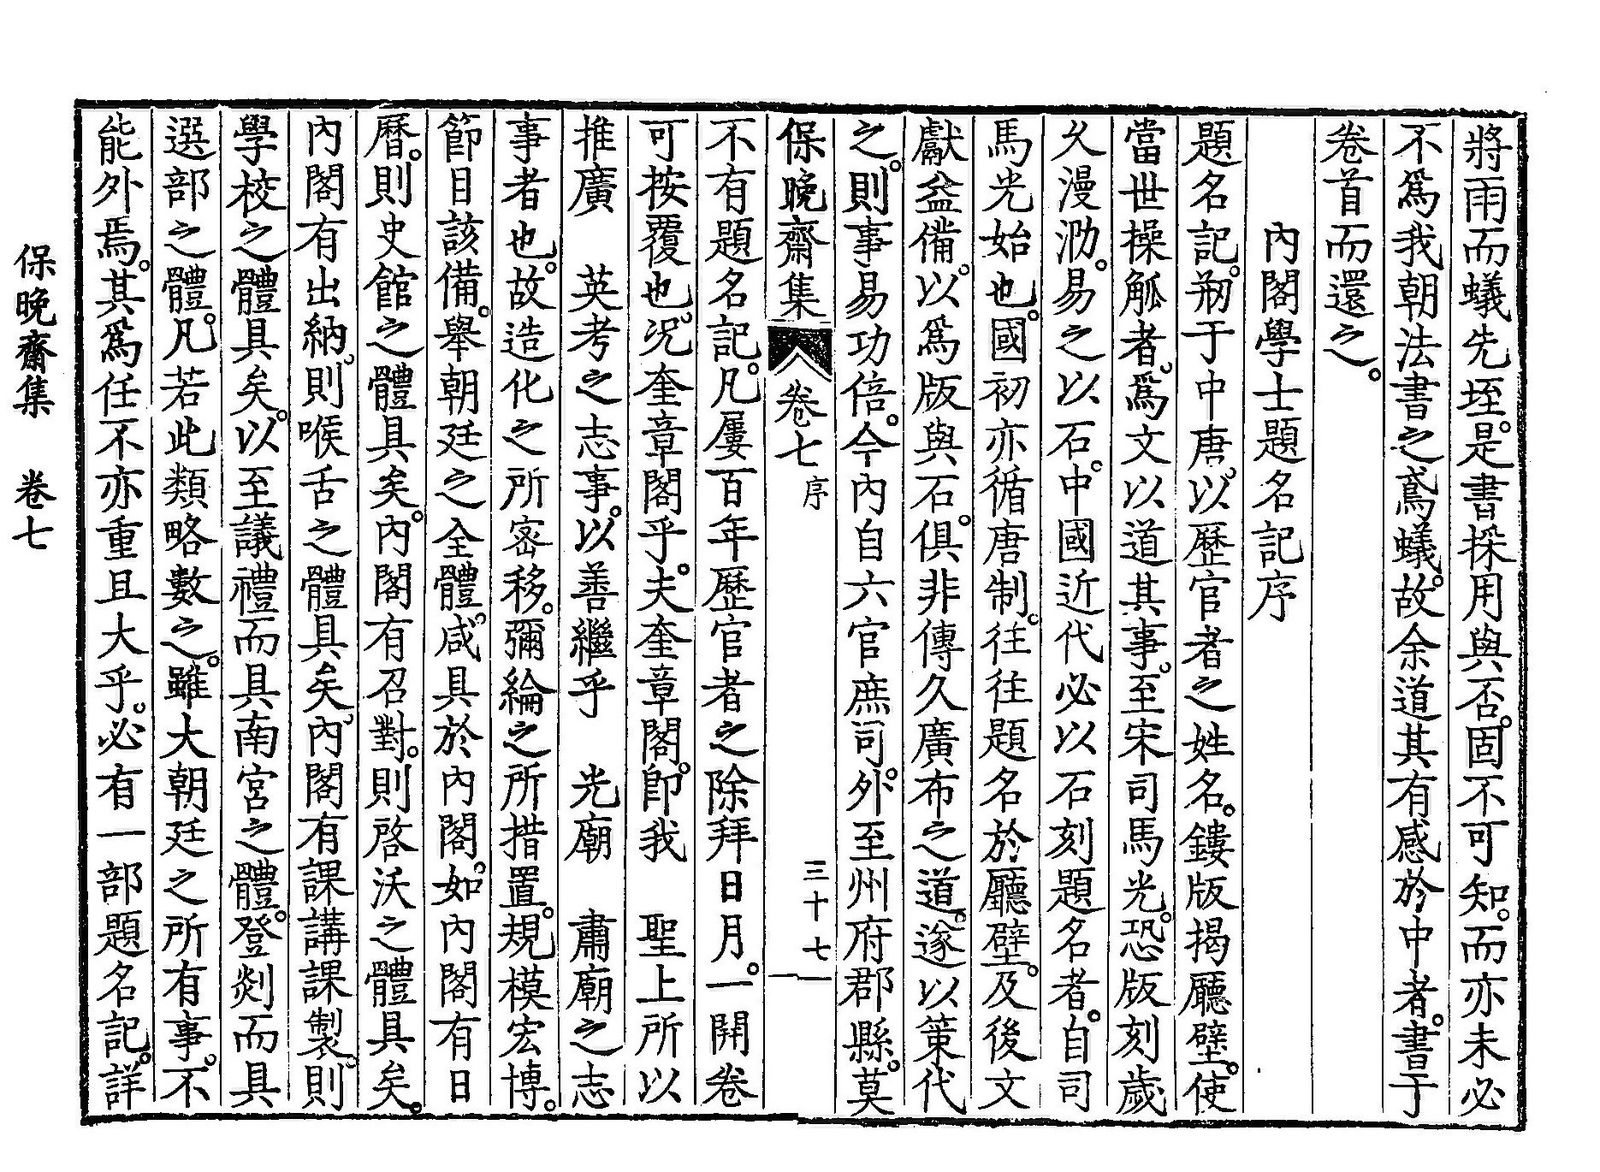 將雨而蟻先垤。是書採用與否。固不可知。而亦未必
不爲我朝法書之鳶蟻。故余道其有感於中者。書于
卷首而還之。
內閣學士題名記序
題名記。刱于中唐。以歷官者之姓名。鏤版揭廳壁。使
當世操觚者。爲文以道其事。至宋司馬光。恐版刻歲
久漫泐。易之以石。中國近代必以石刻題名者。自司
馬光始也。國初亦循唐制。往往題名於廳壁。及後文
獻益備。以爲版與石。俱非傳久廣布之道。遂以策代
之。則事易功倍。今內自六官庶司。外至州府郡縣。莫
保晚齋集 卷七 序 三十七
不有題名記。凡屢百年歷官者之除拜日月。一開卷
可按覆也。况奎章閣乎。夫奎章閣。卽我 聖上所以
推廣 英考之志事。以善繼乎 光廟 肅廟之志
事者也。故造化之所密移。彌綸之所措置。規模宏博。
節目該備。舉朝廷之全體。咸具於內閣。如內閣有日
曆。則史館之體具矣。內閣有召對。則啓沃之體具矣。
內閣有出納。則喉舌之體具矣。內閣有課講課製。則
學校之體具矣。以至議禮而具南宮之體。登剡而具
選部之體。凡若此類略數之。雖大朝廷之所有事。不
能外焉。其爲任不亦重且大乎。必有一部題名記。詳
保晚齋集 卷七